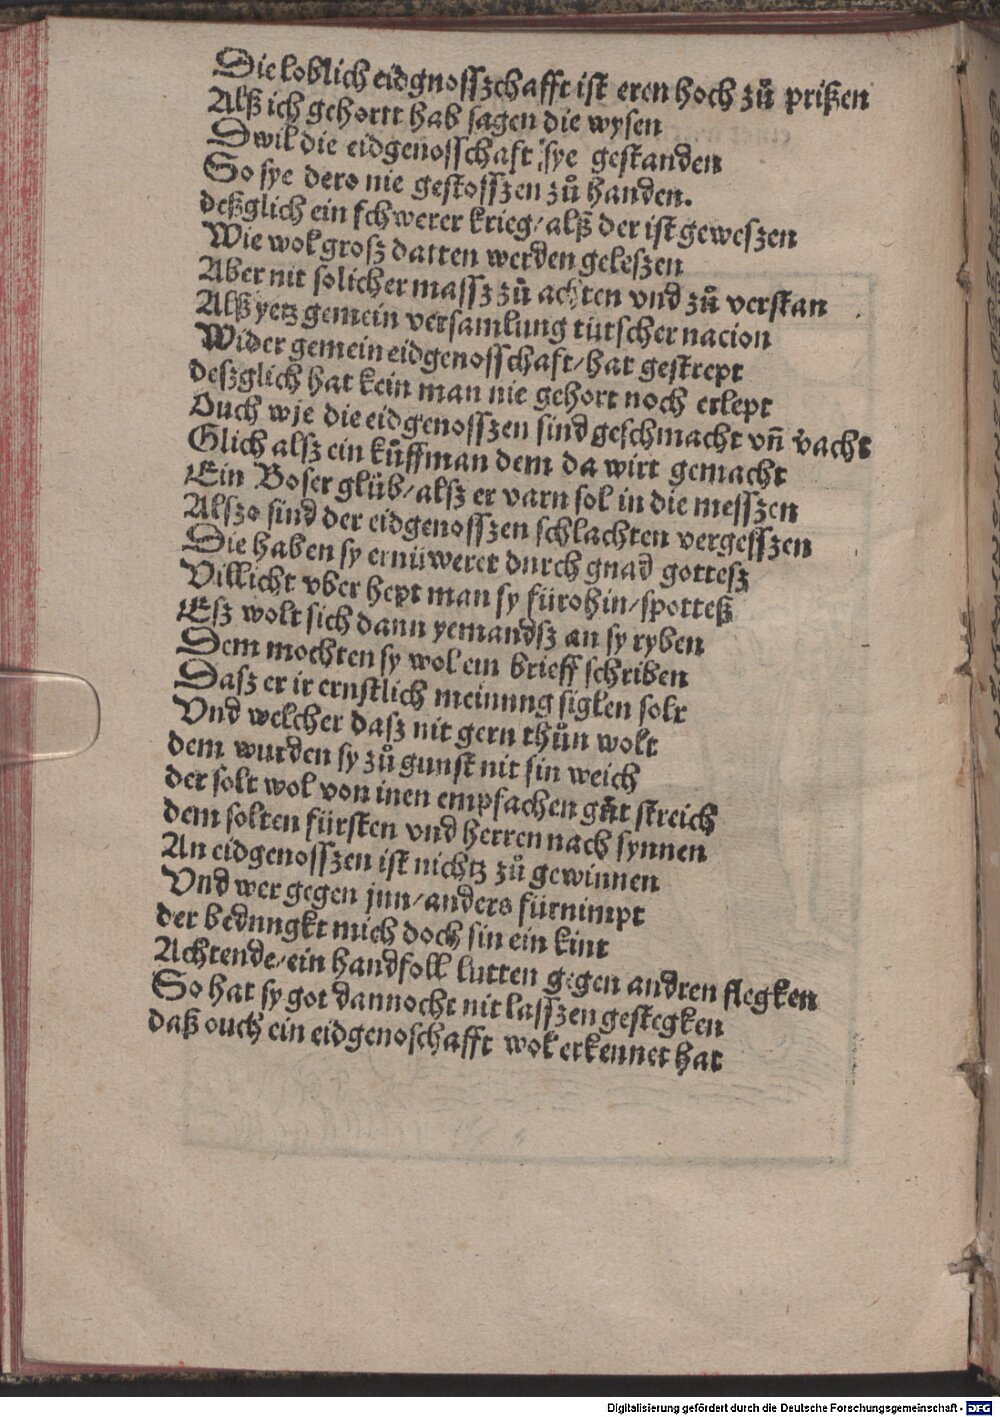 Die loblich eidgnosszchafft ist eren hoch zů prißen
Alß ich gehortt hab sagen die wysen
Dwil die eidgenosschaft sye gestanden
So sye dero nie gestosszen zů handen.
deßglich ein schwerer krieg/ alß der ist geweszen
Wie wol grosz datten werden geleszen
Aber nit solicher massz zů achten vnd zů verstan
Alß yetz gemein versamlung tutscher nacion
Wider gemein eidgenosschaft/ hat gestrept
deszglich hat kein man nie gehort noch erlept
Ouch wje die eidgenosszen sind geschmacht vn̄ v̇acht
Glich alsz ein kůffman dem da wirt gemacht
Ein Boser glüb/ alsz er varn sol in die messzen
Alszo sind der eidgenosszen schlachten vergesszen
Die haben sy ernüweret durch gnad gottesz
Villicht vber hept man sy fürohin/ spotteß
Esz wolt sich dann yemandsz an sy ryben
Dem mochten sy wol ein brieff schriben
Dasz er ir ernstlich meinung siglen solt
Vnd welcher dasz nit gern thůn wolt
dem wurden sy zů gunst nit sin weich
der solt wol von inen empfachen gůt streich
dem solten fürsten vnd herren nach synnen
An eidgenosszen ist nichtz zů gewinnen
Vnd wer gegen jnn/ anders fürnimpt
der bedungkt mich doch sin ein kint
Achtende/ ein handfoll lutten gegen andren flegken
So hat sy got dannocht nit lasszen gestegken
daß ouch ein eidgenoschafft wol erkennet hat
Digitalisierung gefördert durch die Deutsche Forschungsgemeinschaft - DFG